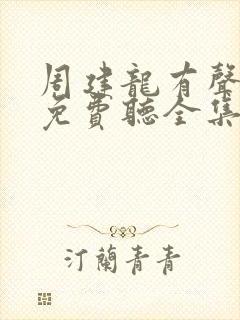 周建龍有聲
免費聽全集
汀蘭青青